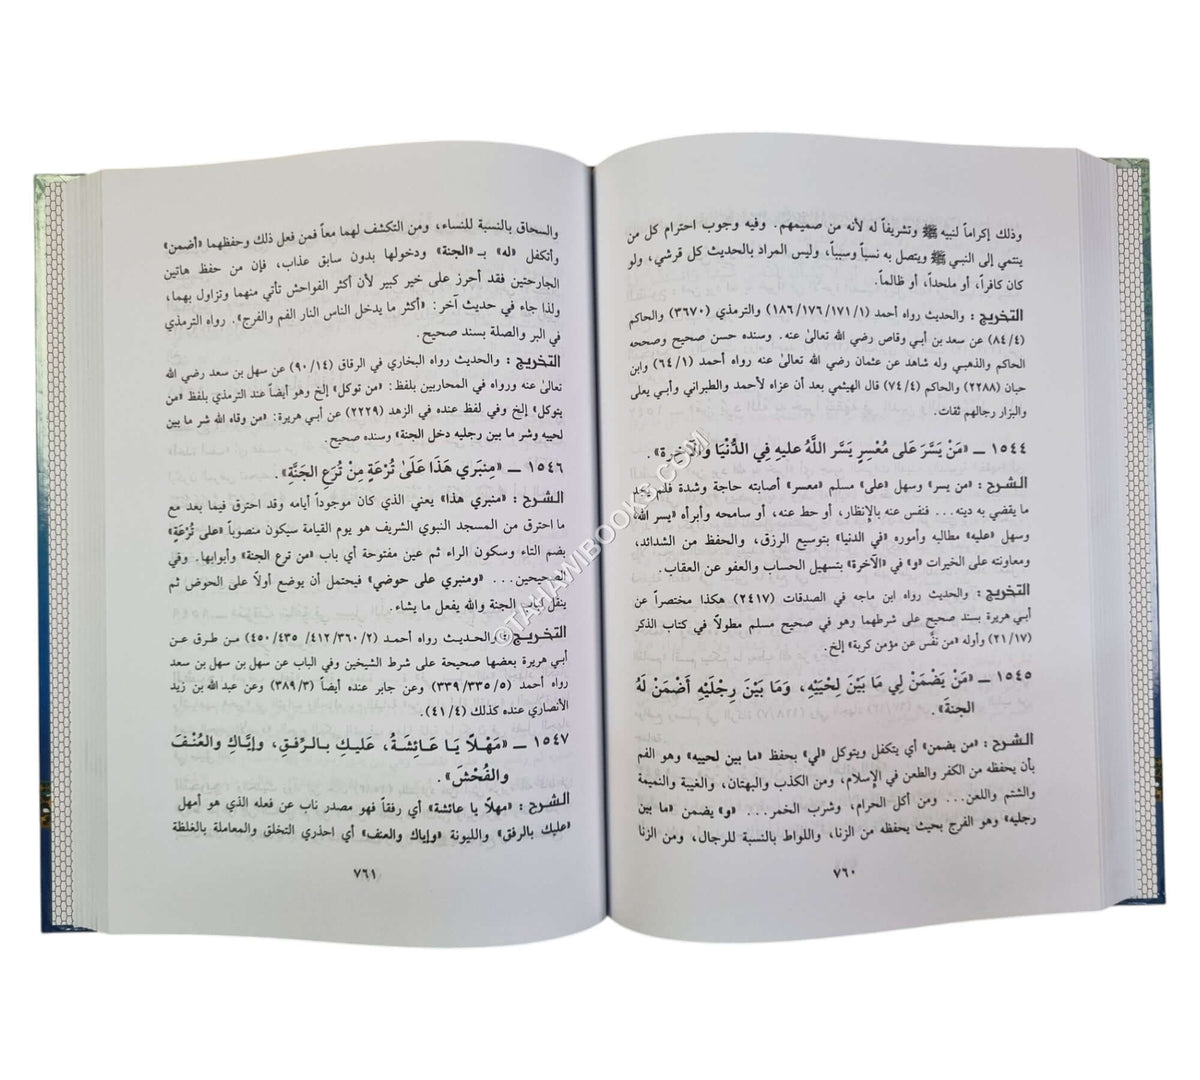 وذلك إكراماً لنبيه ﷺ وتشريفاً له لأنه من صميمهم. وفيه وجوب احترام كل من
ينتمي إلى النبي ﷺ ويتصل به نسباً وسبباً، وليس المراد بالحديث كل قرشي، ولو
كان كافراً، أو ملحداً، أو ظالماً.
التخريج: والحديث رواه أحمد (١/١٧١/١٧٦/١٨٦) والترمذي (٣٦٧٠) والحاكم
(٨٤/٤) عن سعد بن أبي وقاص رضي الله تعالىٰ عنه. وسنده حسن صحيح وصححه
الحاكم والذهبي وله شاهد عن عثمان رضي الله تعالىٰ عنه رواه أحمد (٦٤/١) وابن
حبان (٢٢٨٨) والحاكم (٧٤/٤) قال الهيثمي بعد أن عزاه لأحمد والطبراني وأبي يعلى
والبزار رجالهم ثقات.
١٥٤٤ ـ «مَنْ يَسَّرَ عَلى مُعْسِرٍ يَسَّر اللَّهُ عليهِ فِي الدُّنْيَا وَالآخِرة».
الشرح: «من يسر» وسهل «على» مسلم «معسر» أصابته حاجة وشدة فلم يجد
ما يقضي به دينه... فنفس عنه بالإنظار، أو حط عنه، أو سامحه وأبرأه «يسر الله»
وسهل «عليه» مطالبه وأموره «في الدنيا» بتوسيع الرزق، والحفظ من الشدائد،
ومعاونته على الخيرات «و» في «الآخرة» بتسهيل الحساب والعفو عن العقاب.
التخريج: والحديث رواه ابن ماجه في الصدقات (٢٤١٧) هكذا مختصراً عن
أبي هريرة بسند صحيح على شرطهما وهو في صحيح مسلم مطولاً في كتاب الذكر
(٢١/١٧) وأوله «من نفَّس عن مؤمن كربة» إلخ.
١٥٤٥ ـ «مَنْ يَضْمَنْ لِي مَا بَيْنَ لِحْيَيْهِ، وَمَا بَيْنَ رِجْلَيْهِ أَضْمَنْ لَهُ
الجنةَ».
الشرح: «من يضمن» أي يتكفل ويتوكل «لي» بحفظ «ما بين لحييه» وهو الفم
بأن يحفظه من الكفر والطعن في الإسلام، ومن الكذب والبهتان، والغيبة والنميمة
والشتم واللعن... ومن أكل الحرام، وشرب الخمر... «و» يضمن «ما بين
رجليه» وهو الفرج بحيث يحفظه من الزنا، واللواط بالنسبة للرجال، ومن الزنا
٧٦٠
والسحاق بالنسبة للنساء، ومن التكشف لهما معاً فمن فعل ذلك وحفظهما «أضمن»
وأتكفل «له» بـ «الجنة» ودخولها بدون سابق عذاب، فإن من حفظ هاتين
الجارحتين فقد أحرز على خير كبير لأن أكثر الفواحش تأتي منهما وتزاول بهما،
ولذا جاء في حديث آخر: «أكثر ما يدخل الناس النار الفم والفرج». رواه الترمذي
في البر والصلة بسند صحيح.
التخريج: والحديث رواه البخاري في الرقاق (٩٠/١٤) عن سهل بن سعد رضي الله
تعالىٰ عنه ورواه في المحاربين بلفظ: «من توكل» إلخ وهو أيضاً عند الترمذي بلفظ «من
يتوكل» إلخ وفي لفظ عنده في الزهد (٢٢٢٩) عن أبي هريرة: «من وقاه الله شر ما بين
لحييه وشر ما بين رجليه دخل الجنة» وسنده صحيح.
١٥٤٦ ـ «مِنبَري هَذَا عَلَىٰ تُرْعَةٍ مِنْ تُرَعِ الجَنَّةِ».
الشرح: «منبري هذا» يعني الذي كان موجوداً أيامه وقد احترق فيما بعد مع
ما احترق من المسجد النبوي الشريف هو يوم القيامة سيكون منصوباً «على تُرْعَةٍ»
بضم التاء وسكون الراء ثم عين مفتوحة أي باب «من ترع الجنة» وأبوابها. وفي
الصحيحين... «ومنبري على حوضي» فيحتمل أن يوضع أولاً على الحوض ثم
ينقل لباب الجنة والله يفعل ما يشاء.
التخريج: والحديث رواه أحمد (٢/٣٦٠/٤١٢/ ٤٣٥/ ٤٥٠) من طرق عن
أبي هريرة بعضها صحيحة على شرط الشيخين وفي الباب عن سهل بن سهل بن سعد
رواه أحمد (٥/ ٣٣٥/ ٣٣٩) وعن جابر عنده أيضاً (٣٨٩/٣) وعن عبد الله بن زيد
الأنصاري عنده كذلك (٤١/٤).
١٥٤٧ ـ «مَهْلاً يَا عَائِشَةُ، عَليكِ بالرِّفقِ، وإيَّاكِ والعُنْفَ
والفُحْشَ».
الشرح: «مهلاً يا عائشة» أي رفقاً فهو مصدر ناب عن فعله الذي هو أمهل
«عليك بالرفق» والليونة «وإياك والعنف» أي احذري التخلق والمعاملة بالغلظة
٧٦١
©TAHAWIBOOKS.COM